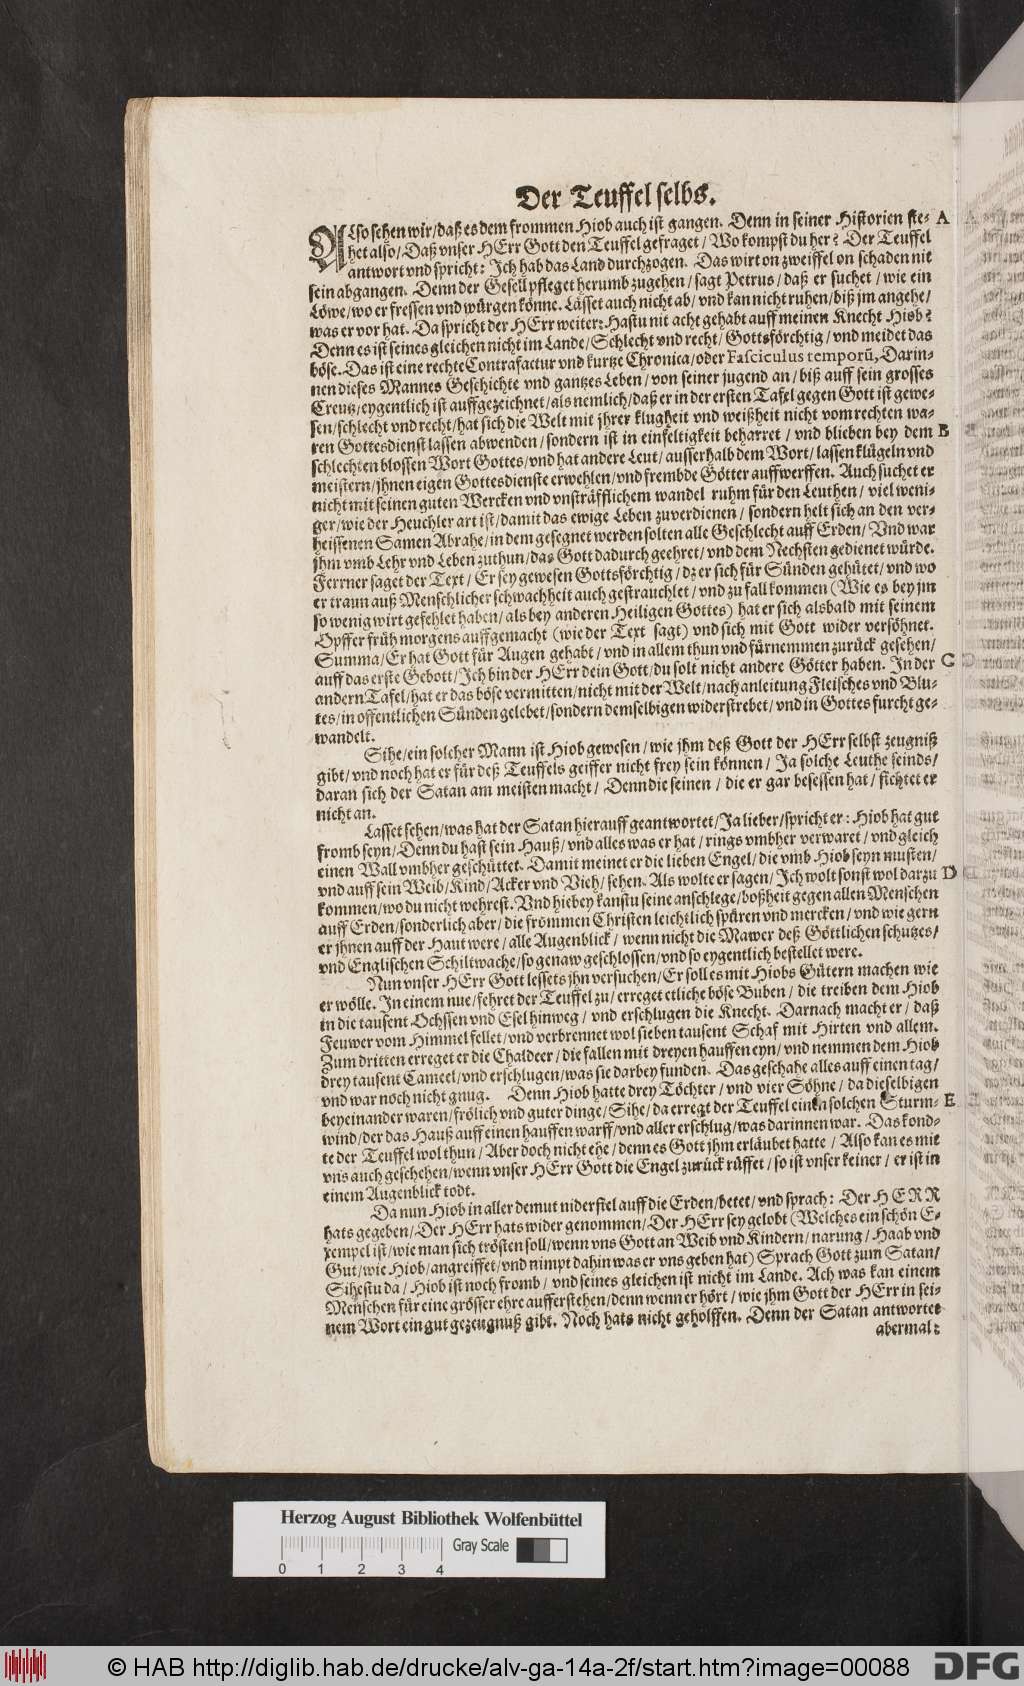 Der Teuffel selbs.
ALso sehen wir/daß es dem frommen Hiob auch ist gangen. Denn in seiner Historien ste- A
het also/Daß vnser HErr Gott den Teuffel gefraget/Wo kompst du her? Der Teuffel
antwort vnd spricht: Ich hab das Land durchzogen. Das wirt on zweiffel on schaden nit
sein abgangen. Denn der Gesell pfleget herumb zugehen/sagt Petrus/daß er suchet/wie ein
Löwe/wo er fressen vnd würgen könne. Lässet auch nicht ab/vnd kan nicht ruhen/biß jm angehe/
was er vor hat. Da spricht der HErr weiter: Hastu nit acht gehabt auff meinen Knecht Hiob?
Denn es ist seines gleichen nicht im Lande/Schlecht vnd recht/Gottsförchtig/vnd meidet das
böse. Das ist eine rechte Contrafactur vnd kurtze Chronica/oder Fasciculus temporū, Darin-
nen dieses Mannes Geschichte vnd gantzes Leben/von seiner jugend an/biß auff sein grosses
Creutz/eygentlich ist auffgezeichnet/als nemlich/daß er in der ersten Tafel gegen Gott ist gewe-
sen/schlecht vnd recht/hat sich die Welt mit jhrer klugheit vnd weißheit nicht vom rechten wa-
ren Gottesdienst lassen abwenden/sondern ist in einfeltigkeit beharret/vnd blieben bey dem B
schlechten blossen Wort Gottes/vnd hat andere Leut/ausserhalb dem Wort/lassen klügeln vnd
meistern/jhnen eigen Gottesdienste erwehlen/vnd frembde Götter auffwerffen. Auch suchet er
nicht mit seinen guten Wercken vnd vnsträfflichem wandel ruhm für den Leuthen/viel weni-
ger/wie der Heuchler art ist/damit das ewige Leben zuverdienen/sondern helt sich an den ver-
heissenen Samen Abrahe/in dem gesegnet werden solten alle Geschlecht auff Erden/Vnd war
jhm vmb Lehr vnd Leben zuthun/das Gott dadurch geehret/vnd dem Nechsten gedienet würde.
Ferrner saget der Text/Er sey gewesen Gottsförchtig/dz er sich für Sünden gehütet/vnd wo
er traun auß Menschlicher schwachheit auch gestrauchlet/vnd zu fall kommen (Wie es bey jm
so wenig wirt gefehlet haben/als bey anderen Heiligen Gottes) hat er sich alsbald mit seinem
Opffer früh morgens auffgemacht (wie der Text sagt) vnd sich mit Gott wider versöhnet.
Summa/Er hat Gott für Augen gehabt/vnd in allem thun vnd fürnemmen zurück gesehen/
auff das erste Gebott/Ich bin der HErr dein Gott/du solt nicht andere Götter haben. In der C
andern Tafel/hat er das böse vermitten/nicht mit der Welt/nach anleitung Fleisches vnd Blu-
tes/in offentlichen Sünden gelebet/sondern demselbigen widerstrebet/vnd in Gottes furcht ge-
wandelt.
Sihe/ein solcher Mann ist Hiob gewesen/wie jhm deß Gott der HErr selbst zeugniß
gibt/vnd noch hat er für deß Teuffels geiffer nicht frey sein können/Ja solche Leuthe seinds/
daran sich der Satan am meisten macht/Denn die seinen/die er gar besessen hat/fichtet er
nicht an.
Lasset sehen/was hat der Satan hierauff geantwortet/Ja lieber/spricht er: Hiob hat gut
fromb seyn/Denn du hast sein Hauß/vnd alles was er hat/rings vmbher verwaret/vnd gleich
einen Wall vmbher geschüttet. Damit meinet er die lieben Engel/die vmb Hiob seyn musten/
vnd auff sein Weib/Kind/Acker vnd Vieh/sehen. Als wolte er sagen/Ich wolt sonst wol darzu D
kommen/wo du nicht wehrest. Vnd hiebey kanstu seine anschlege/boßheit gegen allen Menschen
auff Erden/sonderlich aber/die frommen Christen leichtlich spüren vnd mercken/vnd wie gern
er jhnen auff der Haut were/alle Augenblick/wenn nicht die Mawer deß Göttlichen schutzes/
vnd Englischen Schiltwache/so genaw geschlossen/vnd so eygentlich bestellet were.
Nun vnser HErr Gott lessets jhn versuchen/Er soll es mit Hiobs Gütern machen wie
er wölle. In einem nue/fehret der Teuffel zu/erreget etliche böse Buben/die treiben dem Hiob
in die tausent Ochssen vnd Esel hinweg/vnd erschlugen die Knecht. Darnach macht er/daß
Feuwer vom Himmel fellet/vnd verbrennet wol sieben tausent Schaf mit Hirten vnd allem.
Zum dritten erreget er die Chaldeer/die fallen mit dreyen hauffen eyn/vnd nemmen dem Hiob
drey tausent Cameel/vnd erschlugen/was sie darbey funden. Das geschahe alles auff einen tag/
vnd war noch nicht gnug. Denn Hiob hatte drey Töchter/vnd vier Söhne/da dieselbigen
beyeinander waren/frölich vnd guter dinge/Sihe/da erregt der Teuffel einen solchen Sturm- E
wind/der das Hauß auff einen hauffen warff/vnd aller erschlug/was darinnen war. Das kond-
te der Teuffel wol thun/Aber doch nicht ehe/denn es Gott jhm erläubet hatte/Also kan es mit
vns auch geschehen/wenn vnser HErr Gott die Engel zurück rüffet/so ist vnser keiner/er ist in
einem Augenblick todt.
Da nun Hiob in aller demut niderfiel auff die Erden/betet/vnd sprach: Der HERR
hats gegeben/Der HErr hats wider genommen/Der HErr sey gelobt (Welches ein schön E-
xempel ist/wie man sich trösten soll/wenn vns Gott an Weib vnd Kindern/narung/Haab vnd
Gut/wie Hiob/angreiffet/vnd nimpt dahin was er vns geben hat) Sprach Gott zum Satan/
Sihestu da/Hiob ist noch fromb/vnd seines gleichen ist nicht im Lande. Ach was kan einem
Menschen für eine grösser ehre aufferstehen/denn wenn er hört/wie jhm Gott der HErr in sei-
nem Wort ein gut gezeugnuß gibt. Noch hats nicht geholffen. Denn der Satan antwortet
abermal:
Herzog August Bibliothek Wolfenbüttel
Gray Scale
0 1 2 3 4
© HAB http://diglib.hab.de/drucke/alv-ga-14a-2f/start.htm?image=00088
DFG